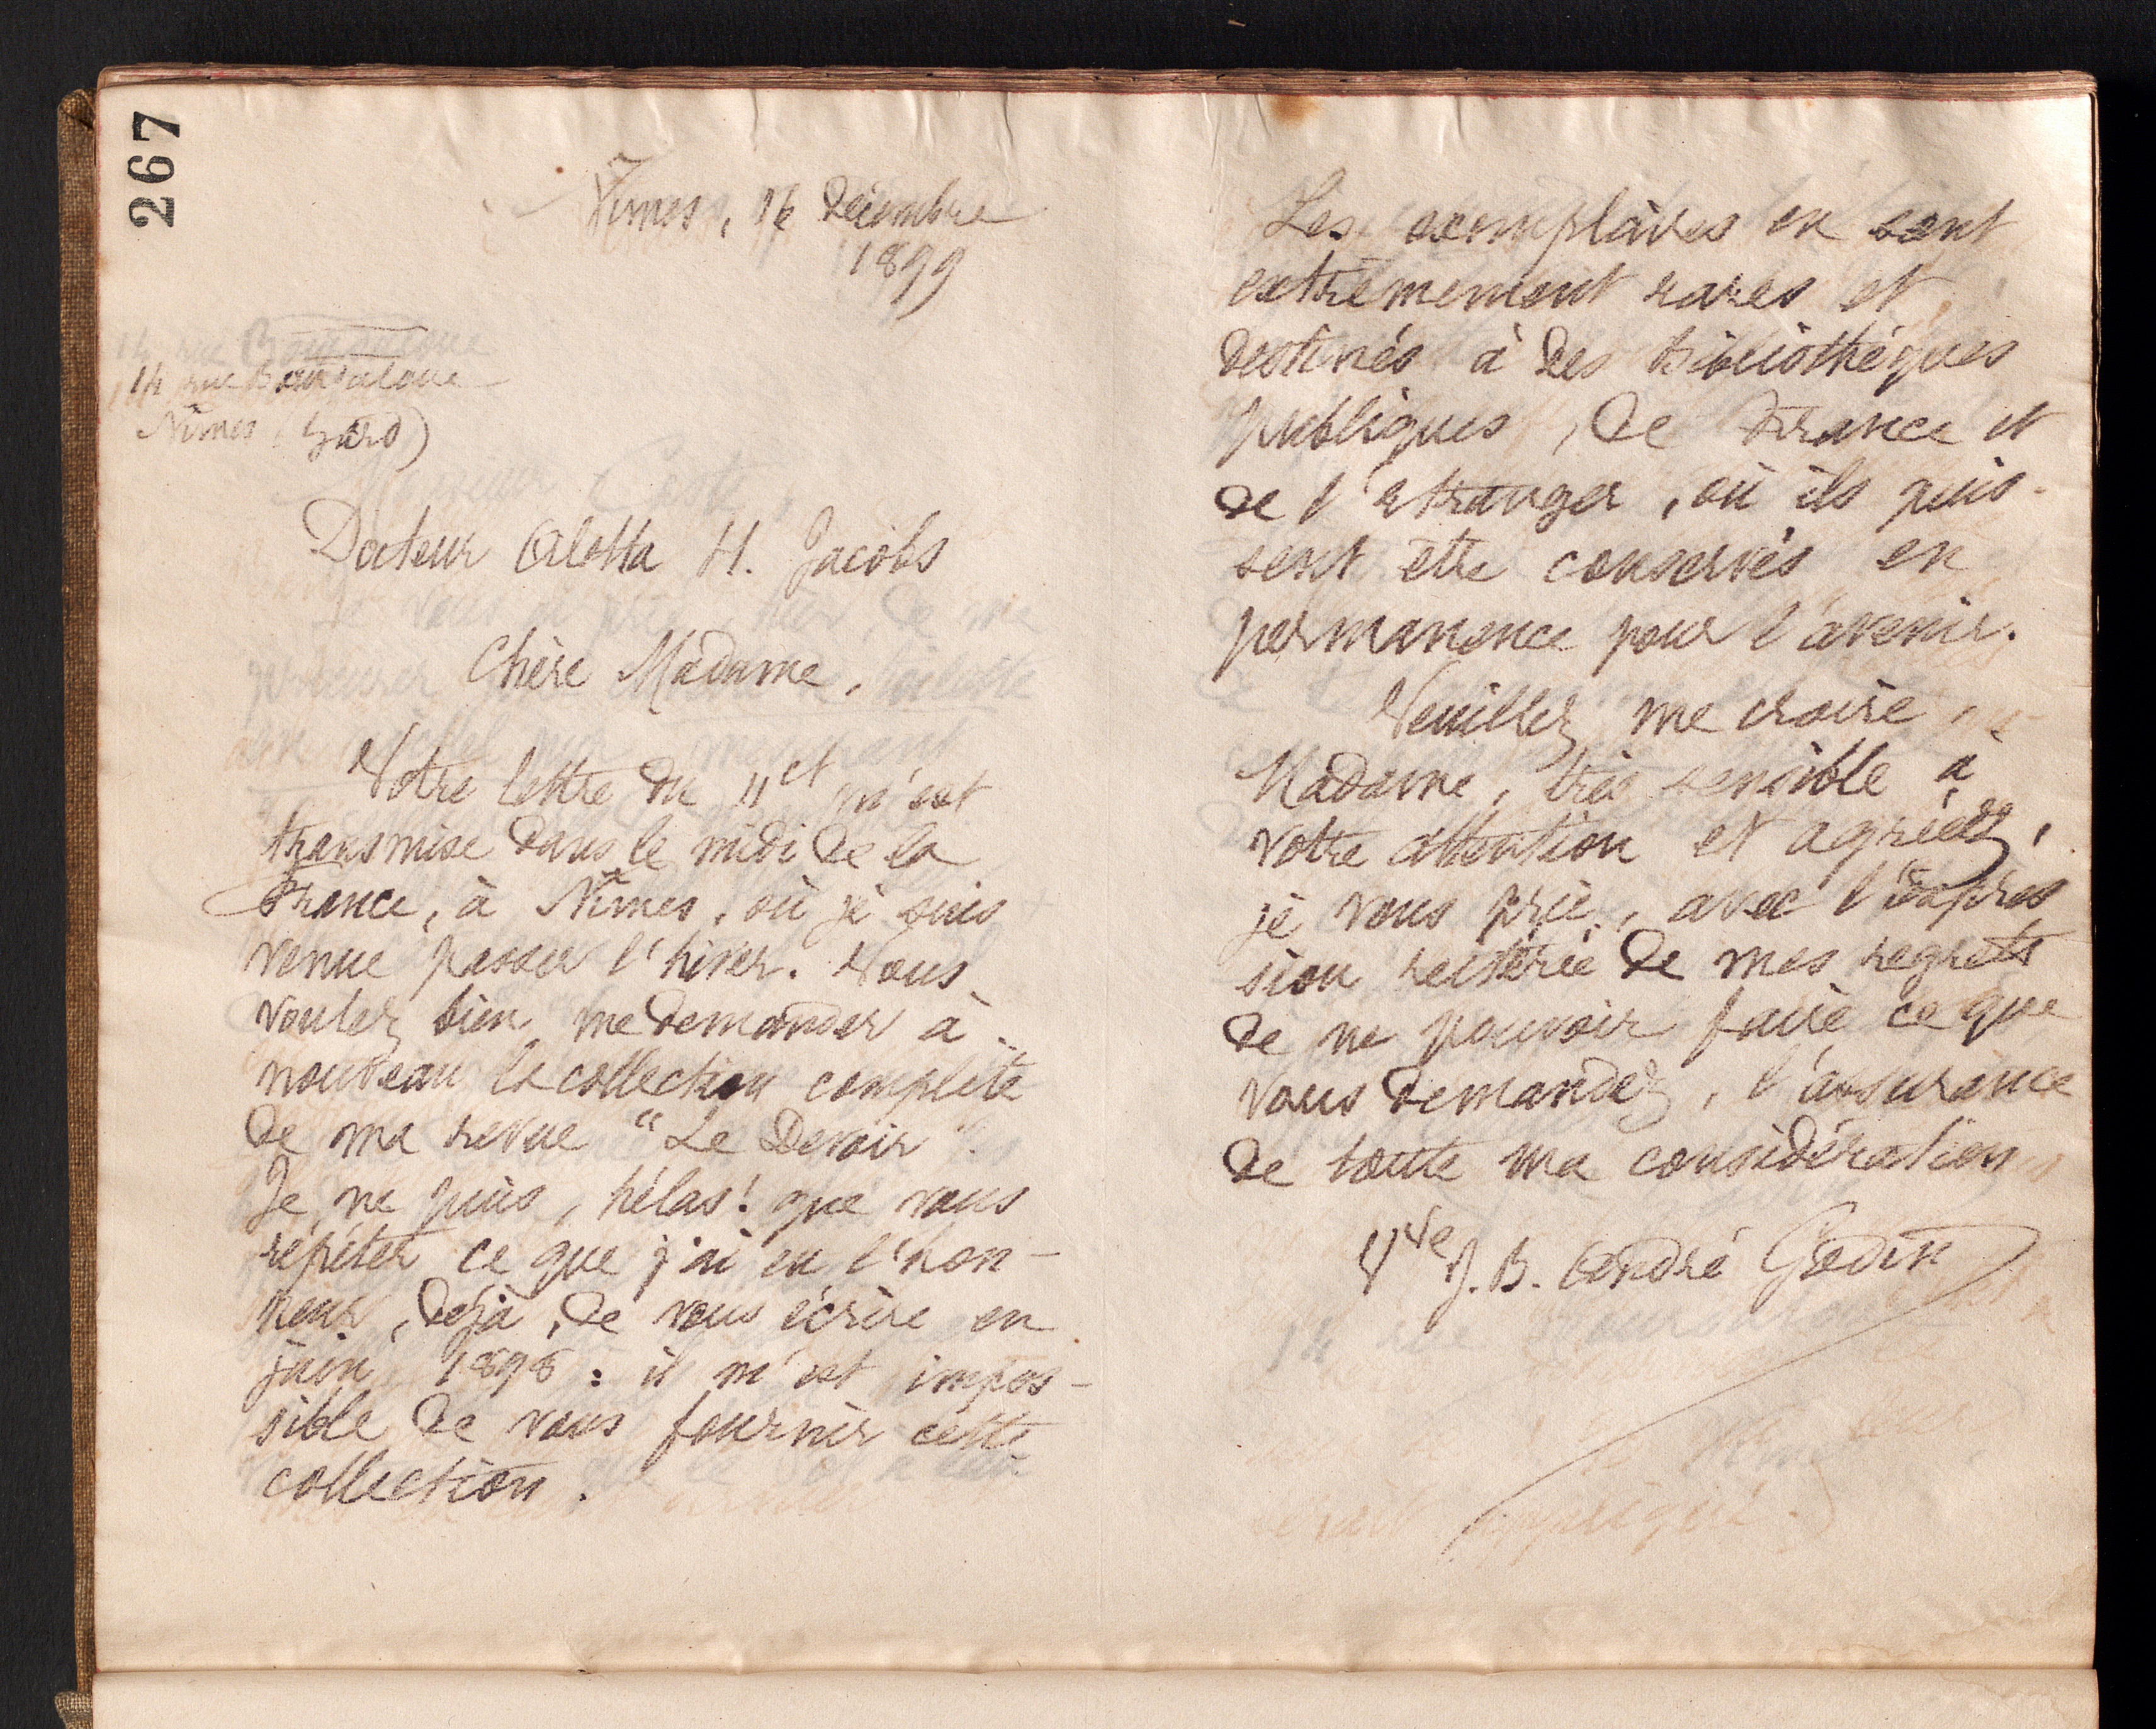 267
Nîmes, 16 décembre
1899
14 rue Bourdaloue
Nîmes (Gard)
Docteur Aletta H. Jacobs
Chère Madame,
Votre lettre du 11 ct m'est
transmise dans le midi de la
France, à Nîmes, où je suis
venue passer l'hiver. Vous
voulez bien me demander à
nouveau la collection complète
de ma revue "Le Devoir".
Je ne puis, hélas! que vous
répéter ce que j'ai eu l'hon-
neur, déjà, de vous écrire en
juin 1898 : il m'est impos-
sible de vous fournir cette
collection.
Les exemplaires en sont
extrêmement rares et
destinés à des bibliothèques
publiques, de France et
de l'étranger, où ils puis-
sent être conservés en
permanence pour l'avenir.
Veuillez me croire,
Madame, très sensible à
votre attention et agréez,
je vous prie, avec l'expres
sion réitérée de mes regrets
de ne pouvoir faire ce que
vous demandez, l'assurance
de toute ma considération
Vve J. B. André Godin